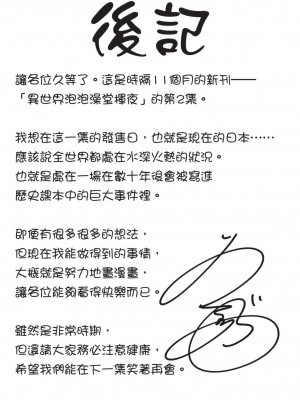 後記
讓各位久等了。這是時隔11個月的新刊——
「異世界泡泡澡堂揮夜」的第2集。
我想在這一集的發售日，也就是現在的日本……
應該說全世界都處在水深火熱的狀況。
也就是處在一場在數十年後會被寫進
歷史課本中的巨大事件裡。
即便有很多很多的想法，
但現在我能做得到的事情，
大概就是努力地畫漫畫，
讓各位能夠看得快樂而已。
雖然是非常時期，
但還請大家務必注意健康，
希望我們能在下一集笑著再會。